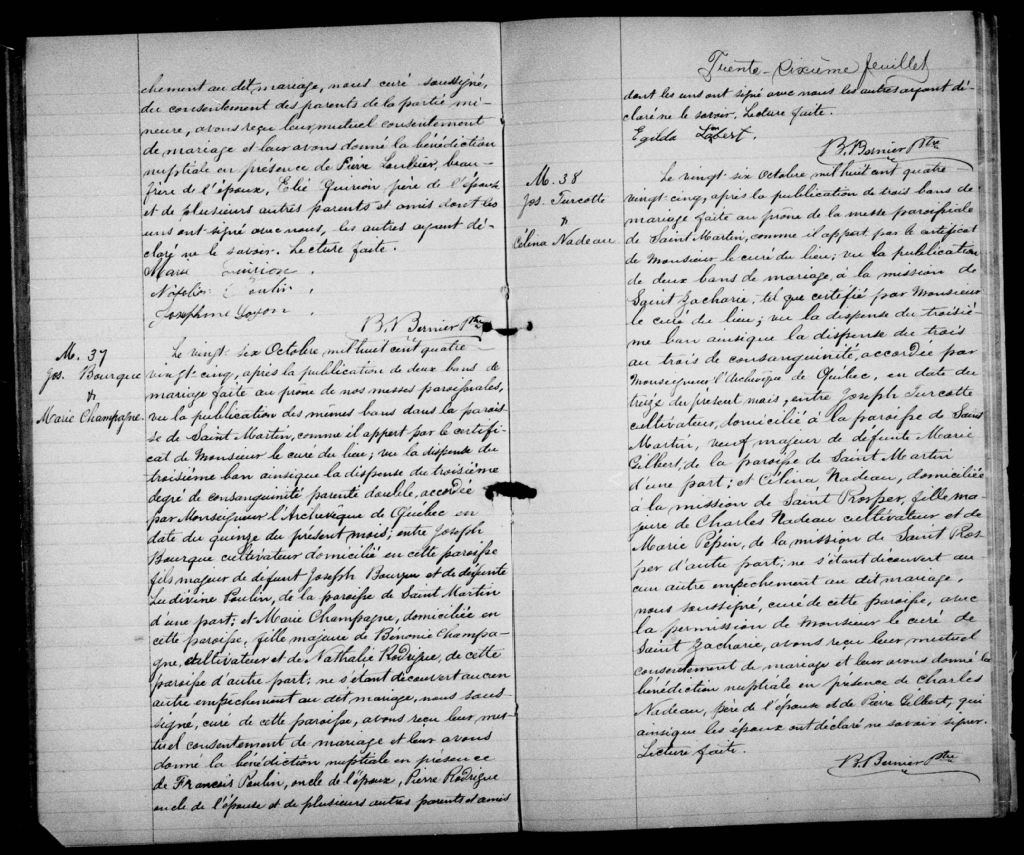 chement au dit mariage, nous curé soussigné,
du consentement des parents de la partie mi-
neure, avons reçu leur mutuel consentement
de mariage et leur avons donné la bénédiction
nuptiale en présence de Pierre Loubier, beau-
frère de l'époux, Elie Quirion père de l'épouse
et de plusieurs autres parents et amis dont les
uns ont signé avec nous, les autres ayant dé-
claré ne le savoir. Lecture faite.
Marie Quirion.
Napoléon Poulin.
Josephine
B. Bernier Ptre
M. 37
Jos. Bourque
&
Marie Champagne.
Le vingt-six Octobre mil huit cent quatre-
vingt-cinq, après la publication de deux bans de
mariage faite au prône de nos messes paroissiales,
vu la publication des mêmes bans dans la parois-
se de Saint Martin, comme il appert par le certifi-
cat de Monsieur le curé du lieu; vu la dispense du
troisième ban ainsique la dispense du troisième
degré de consanguinité parenté double, accordée
par Monseigneur l'Archevêque de Québec en
date du quinze du présent mois; entre Joseph
Bourque cultivateur domicilié en cette paroisse
fils majeur de défunt Joseph Bourque et de défunte
Ludivine Poulin, de la paroisse de Saint Martin
d'une part; et Marie Champagne, domiciliée en
cette paroisse, fille majeure de Bénonie Champa-
gne, cultivateur et de Nathalie Rodrigue, de cette
paroisse d'autre part; ne s'étant découvert aucun
autre empêchement au dit mariage, nous sous-
signé, curé de cette paroisse, avons reçu leur mu-
tuel consentement de mariage et leur avons
donné la bénédiction nuptiale en présence
de François Poulin, oncle de l'époux, Pierre Rodrigue
oncle de l'épouse et de plusieurs autres parents et amis
Trente-Sixième feuillet
dont les uns ont signé avec nous les autres ayant dé-
claré ne le savoir. Lecture faite.
Egilda Lambert.
B. Bernier Ptre
M. 38
Jos. Turcotte
&
Célina Nadeau
Le vingt-six Octobre, mil huit cent quatre-
vingt-cinq, après la publication de trois bans de
mariage faite au prône de la messe paroissiale
de Saint Martin, comme il appert par le certificat
de Monsieur le curé du lieu; vu la publication
de deux bans de mariage à la mission de
Saint Zacharie, tel que certifié par Monsieur
le curé du lieu; vu la dispense du troisiè-
me ban ainsique la dispense du trois
au trois de consanguinité, accordée par
Monseigneur l'Archevêque de Québec, en date du
treize du présent mois, entre Joseph Turcotte
cultivateur, domicilié à la paroisse de Saint
Martin, veuf majeur de défunte Marie
Gilbert, de la paroisse de Saint Martin
d'une part; et Célina Nadeau, domiciliée
à la mission de Saint Prosper, fille ma-
jeure de Charles Nadeau cultivateur et de
Marie Pépin, de la mission de Saint Pros-
per d'autre part; ne s'étant découvert au
cun autre empêchement au dit mariage,
nous soussigné, curé de cette paroisse, avec
la permission de Monsieur le curé de
Saint Zacharie, avons reçu leur mutuel
consentement de mariage et leur avons donné la
bénédiction nuptiale en présence de Charles
Nadeau, père de l'épouse et de Pierre Gilbert, qui
ainsique les époux ont déclaré ne savoir signer.
Lecture faite.
B. Bernier Ptre